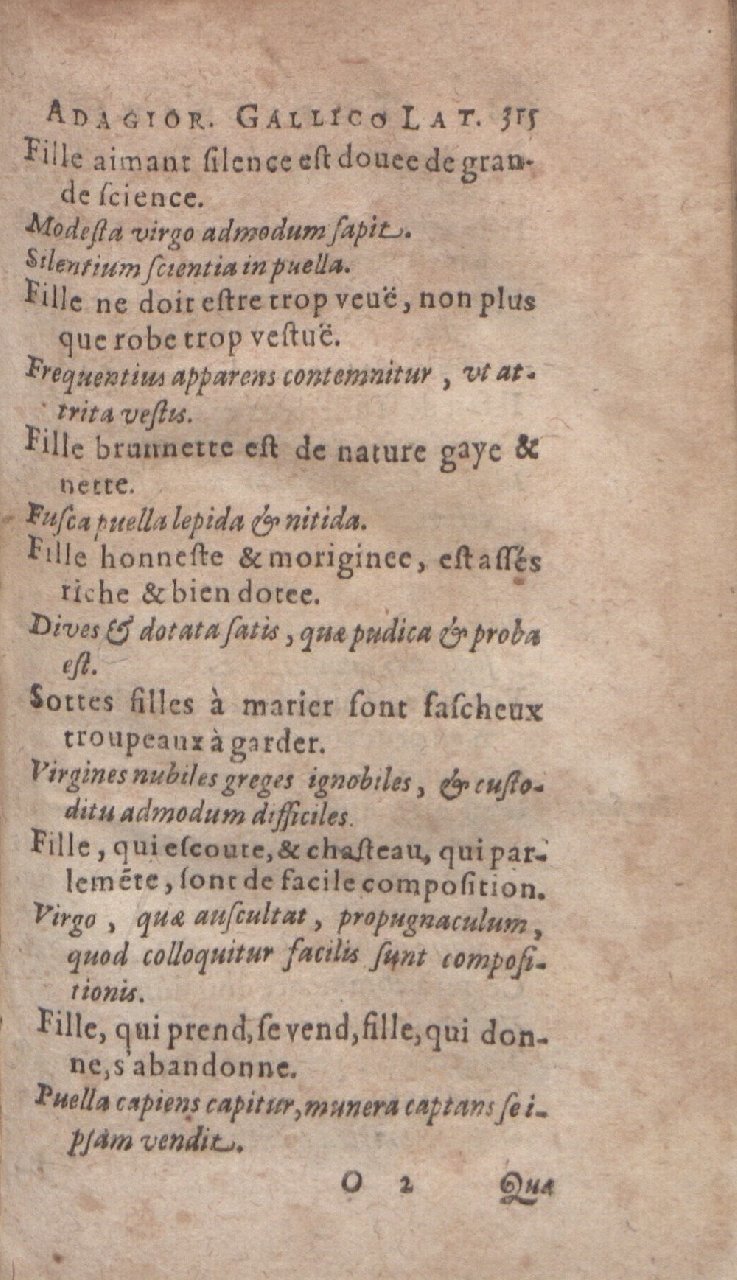 ADAGIOR. GALLICO LAT. 315
Fille aimant ſilence eſt douee de gran-
de ſcience.
Modeſta virgo admodum ſapit.
Silentium ſcientia in puella.
Fille ne doit eſtre trop veuë, non plus
que robe trop veſtuë.
Frequentius apparens contemnitur, vt at-
trita veſtis.
Fille brunnette eſt de nature gaye &
nette.
Fuſca puella lepida & nitida.
Fille honneſte & moriginee, eſt aſſés
riche & bien dotee.
Dives & dotata ſatis, quæ pudica & proba
eſt.
Sottes filles à marier ſont faſcheux
troupeaux à garder.
Virgines nubiles greges ignobiles, & cuſto-
ditu admodum difficiles.
Fille, qui eſcoute, & chaſteau, qui par-
lemẽte, ſont de facile compoſition.
Virgo, quæ auſcultat, propugnaculum,
quod colloquitur facilis ſunt compoſi-
tionis.
Fille, qui prend, ſe vend, fille, qui don-
ne, s'abandonne.
Puella capiens capitur, munera captans ſe i-
pſam vendit.
O 2 Quæ